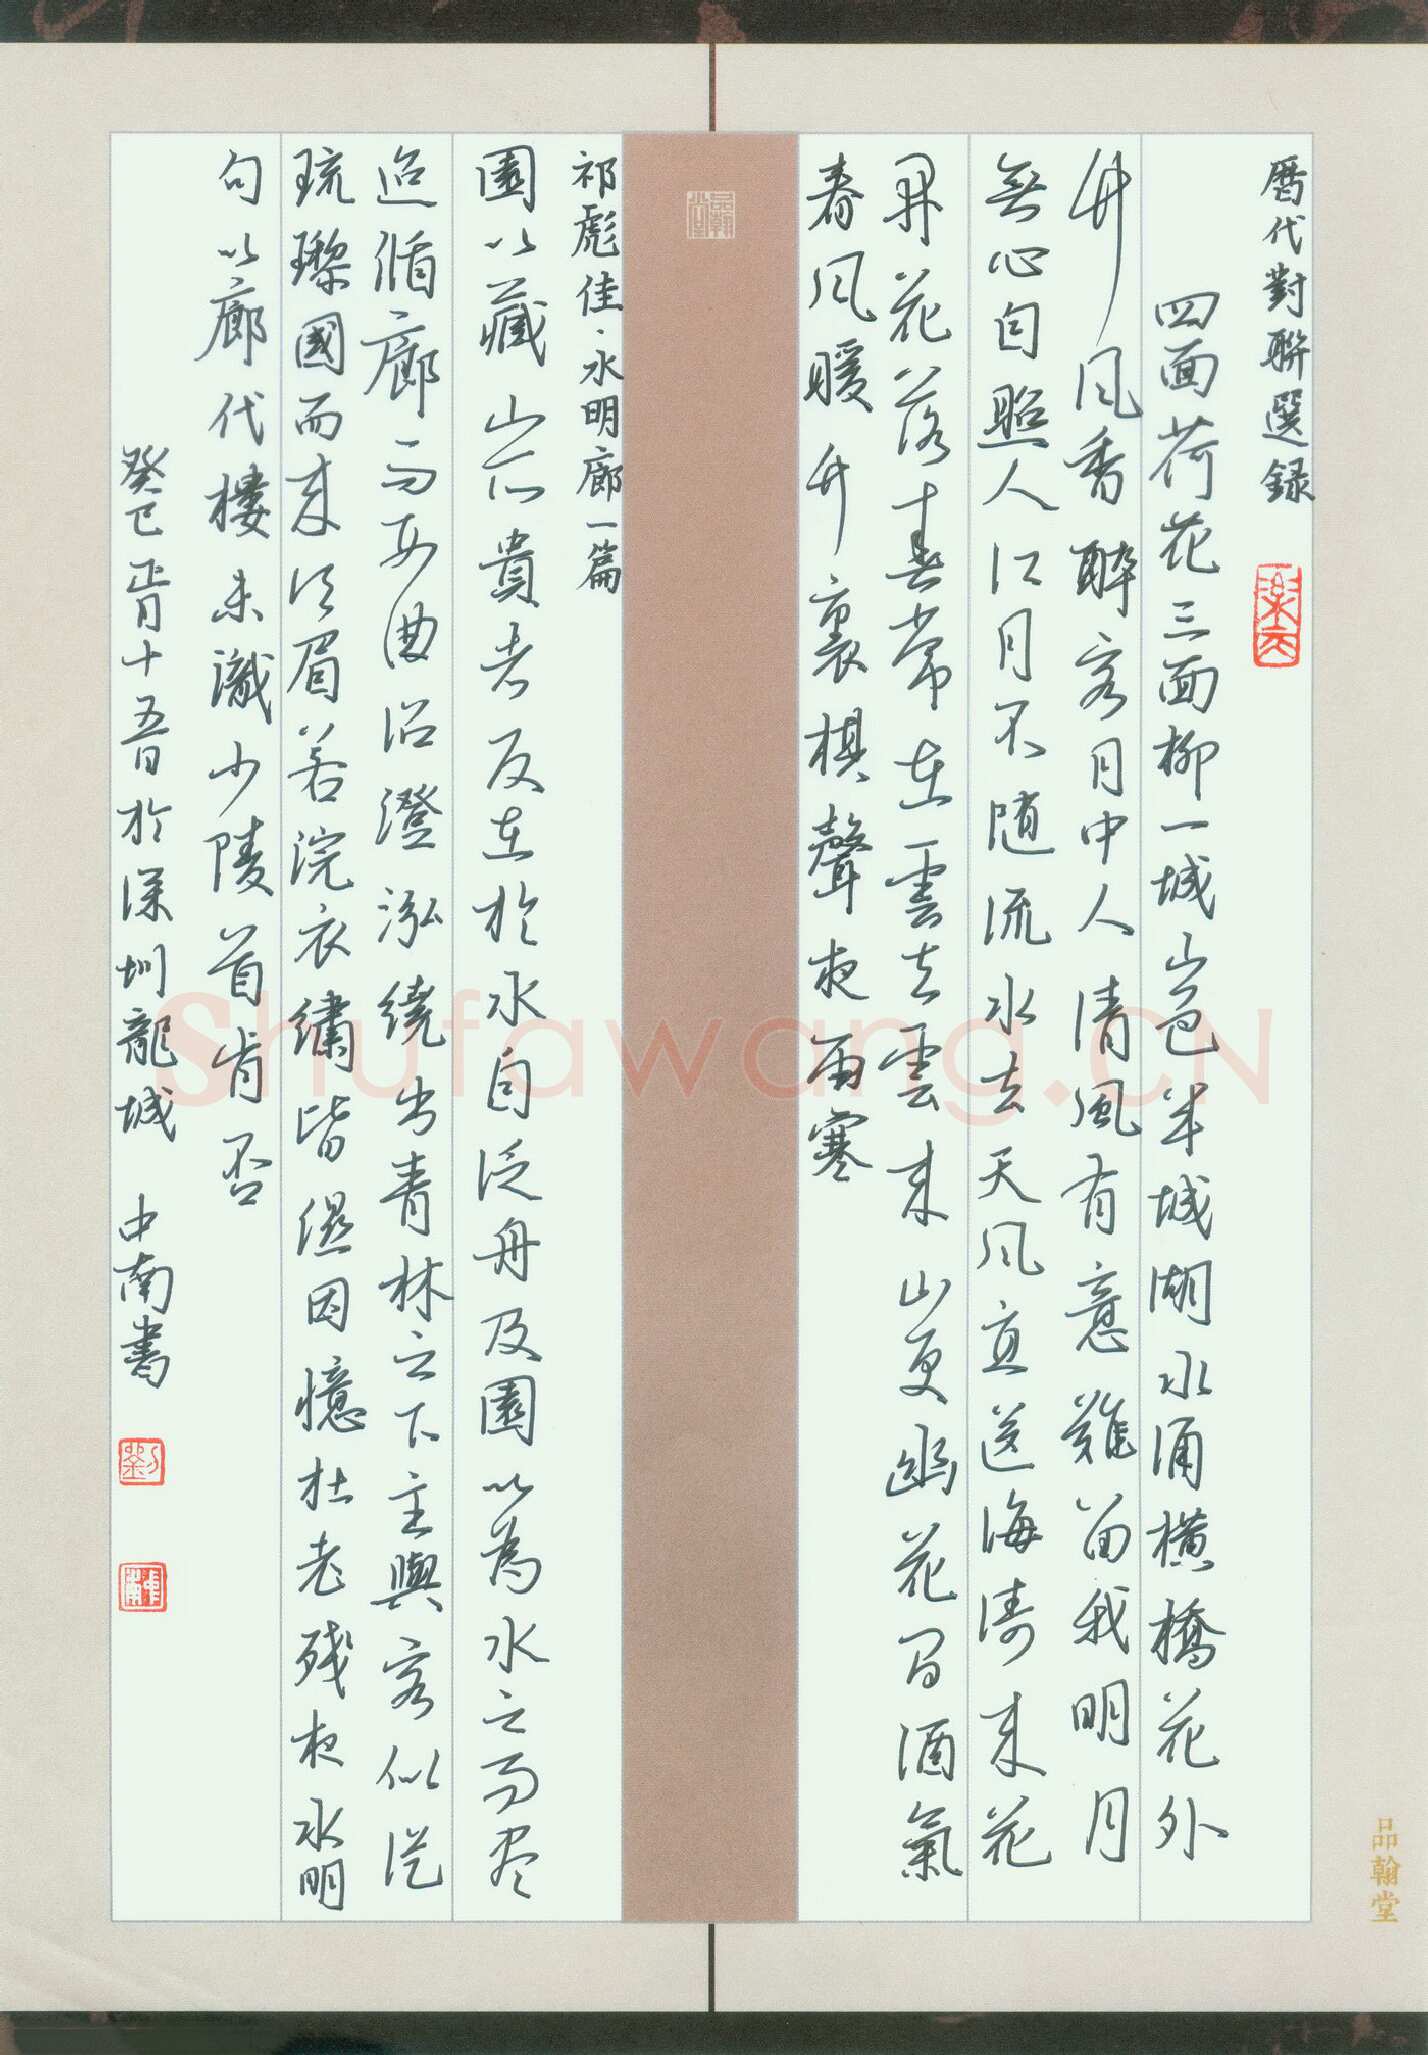 曆代對聯選錄
四面荷花三面柳一城山色半城湖水涌橫橋花外
竹風香醉客月中人清風有意難留我明月
無心自照人江月不随流水去天風直送海濤来花
開花落春常在雲去雲来山更幽花間酒氣
春風暖竹裏棋聲夜雨寒
祁彪佳·水明廊一篇
園以藏山所貴者反在於水自泛舟及園以為水之而盡
迨循廊而西曲沼澄泓繞出青林之下主與客似從
琉璨國而来須眉若浣衣繡皆濕因憶杜老残夜水明
句以廊代樓未識少陵首肯否
癸巳正月十五日於深圳龍城 中南書
品翰堂
Shufawang.CN